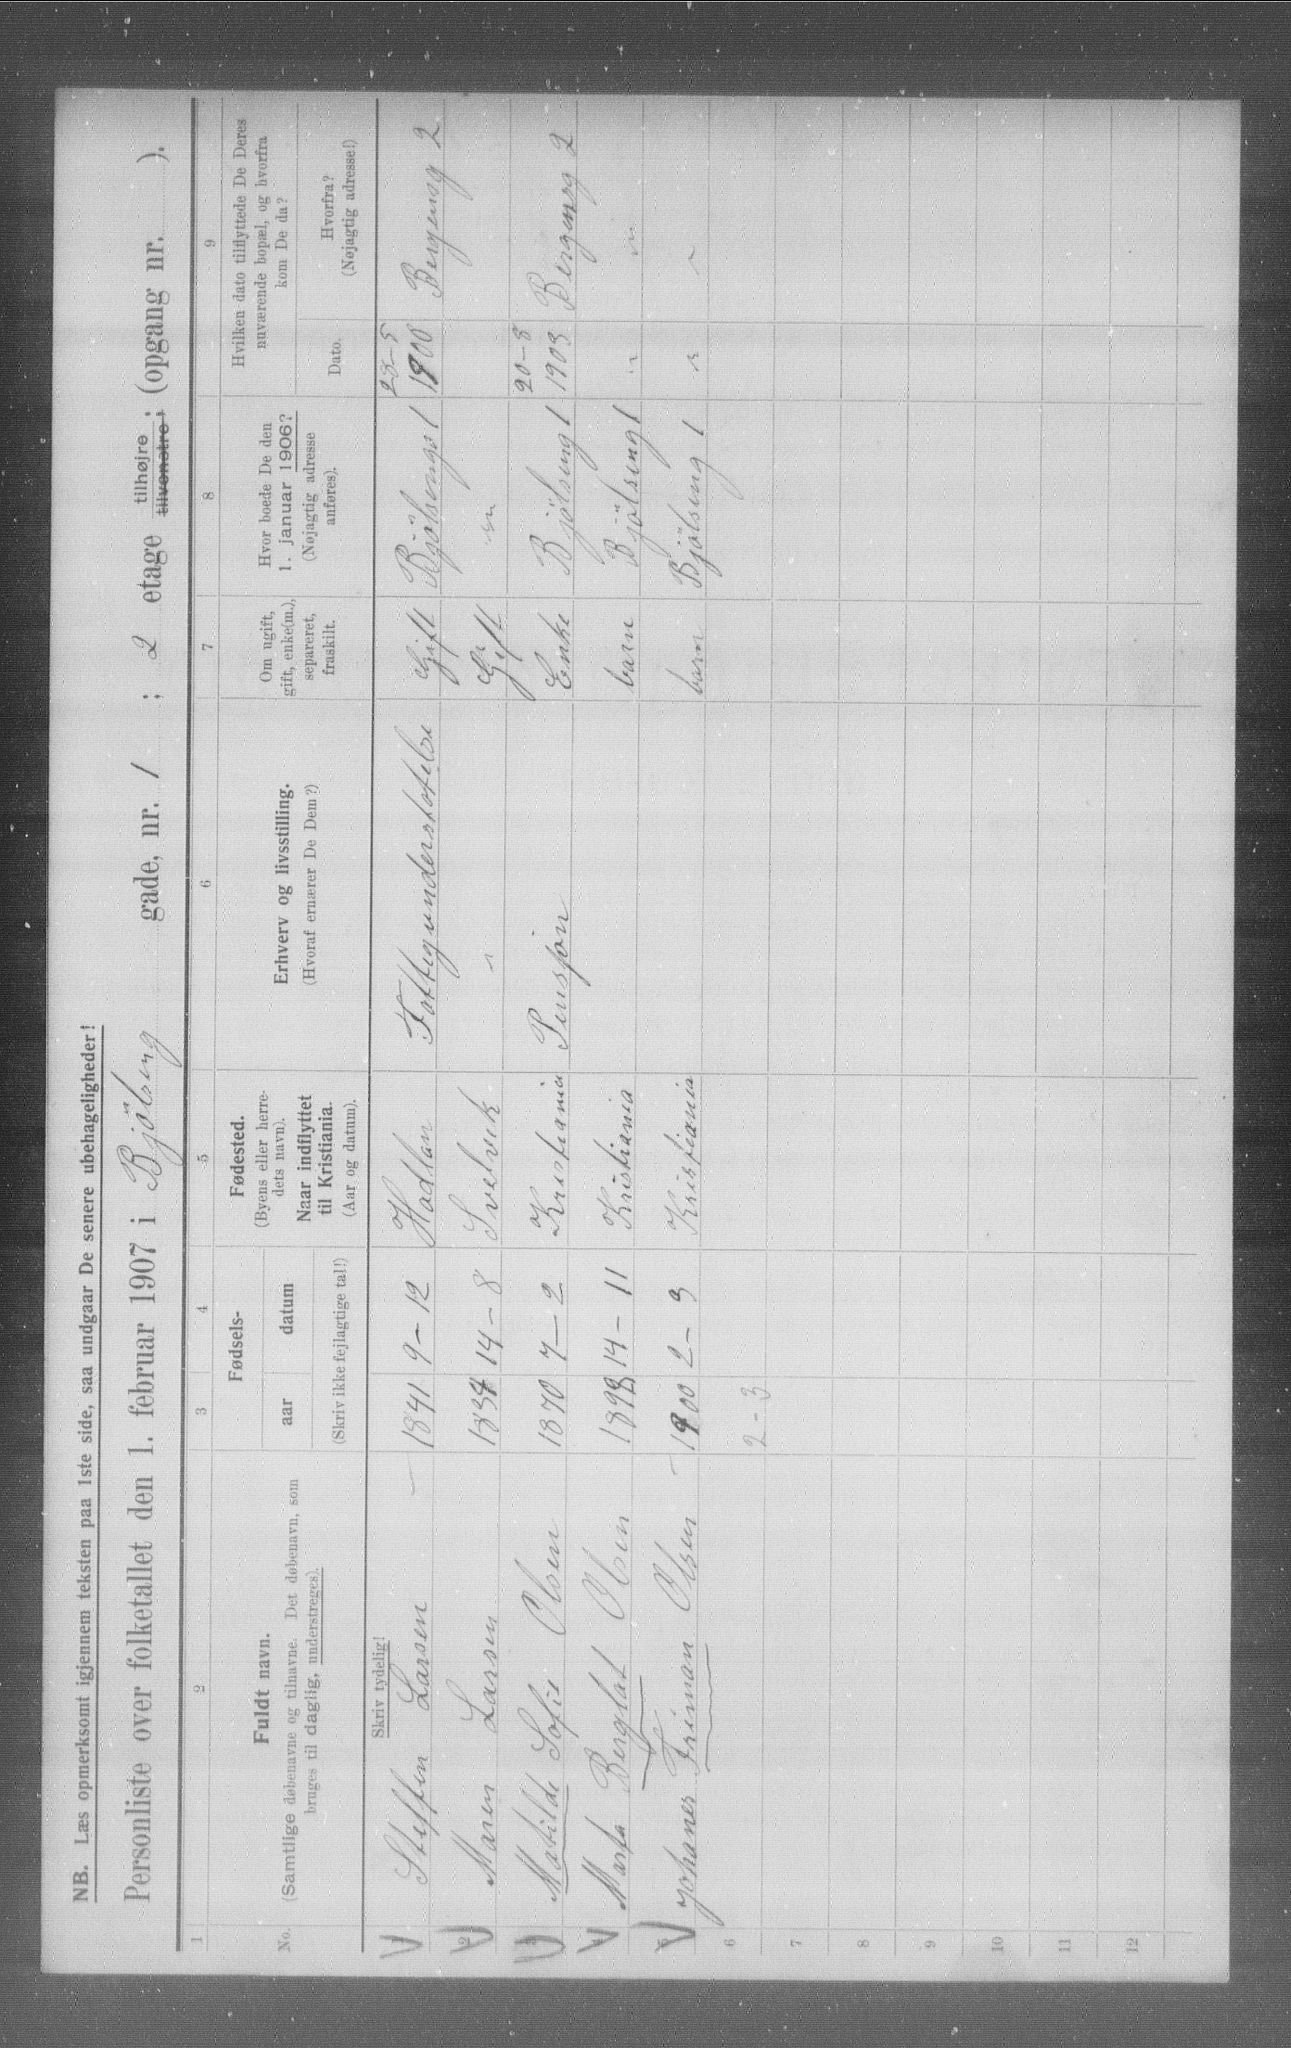 NB. Læs opmerksomt igjennem teksten paa 1ste side, saa undgaar De senere ubehageligheder!
Personliste over folketallet den 1. februar 1907 i Bjölseng gade, nr. 1 ; 2 etage tilhøjre ; tilvenstre ; (opgang nr. ).
1 2 3 4 5 6 7 8 9
No. Fuldt navn. (Samtlige døbenavne og tilnavne. Det døbenavn, som bruges til daglig, understreges).
Fødsels- aar datum (Skriv ikke fejlagtige tal!)
Fødested. (Byens eller herredets navn). Naar indflyttet til Kristiania. (Aar og datum).
Erhverv og livsstilling. (Hvoraf ernærer De Dem?)
Om ugift, gift, enke(m.), separeret, fraskilt.
Hvor boede De den 1. januar 1906? (Nøjagtig adresse anføres).
Hvilken dato tilflyttede De Deres nuværende bopæl, og hvorfra kom De da?
Dato. Hvorfra? (Nøjagtig adresse!)
Skriv tydelig!
1 Steffen Larsen 1841 9-12 Hadlan Fattigunderstotelse Gift Bjölsengst 1 28-5 1900 Bergensg 2
2 Maren Larsen 1834 14-8 Svelvik " Gift "
3 Matilde Sofie Olsen 1870 7-2 Kristiania Pensjon Enke Bjölseng 1 20-8 1903 Bergensg 2
4 Marta Bergliot Olsen 1898 14-11 Kristiania barn Bjölseng 1 " "
5 Johanes Friman Olsen 1900 2-3 Kristiania barn Bjölseng 1 " "
6 2-3
7
8
9
10
11
12